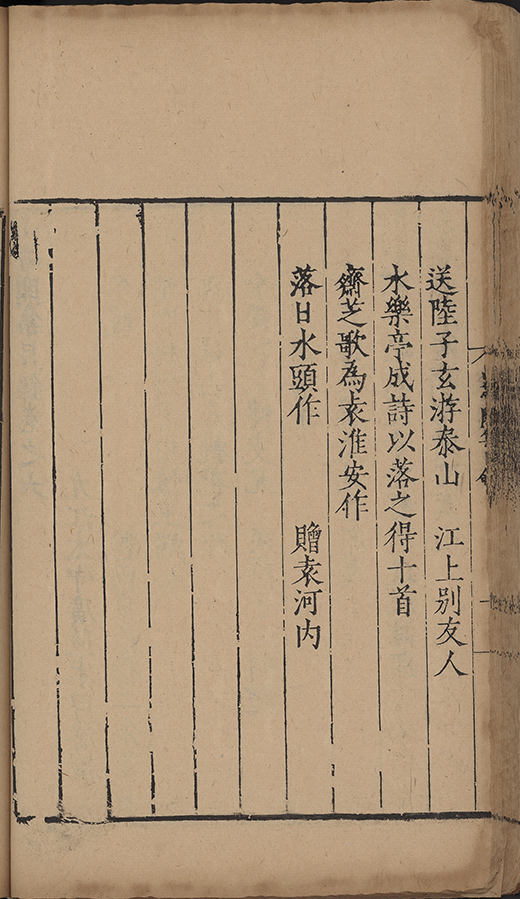 送陸子玄游泰山　江上別友人
水樂亭成詩以落之得十首
齋芝歌為袁淮安作
落日水頭作　　贈袁河内